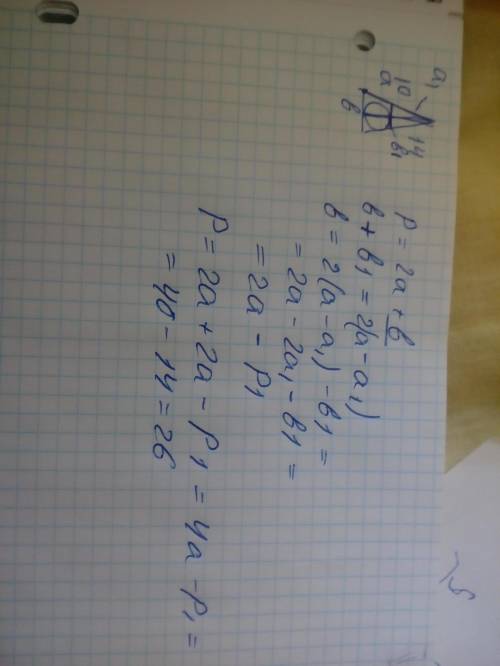 a₁
10
a
14
b₁
b
P = 2a + b
b + b₁ = 2(a - a₁)
b = 2(a - a₁) - b₁ =
= 2a - 2a₁ - b₁ =
= 2a - P₁
P = 2a + 2a - P₁ = 4a - P₁ =
= 40 - 14 = 26